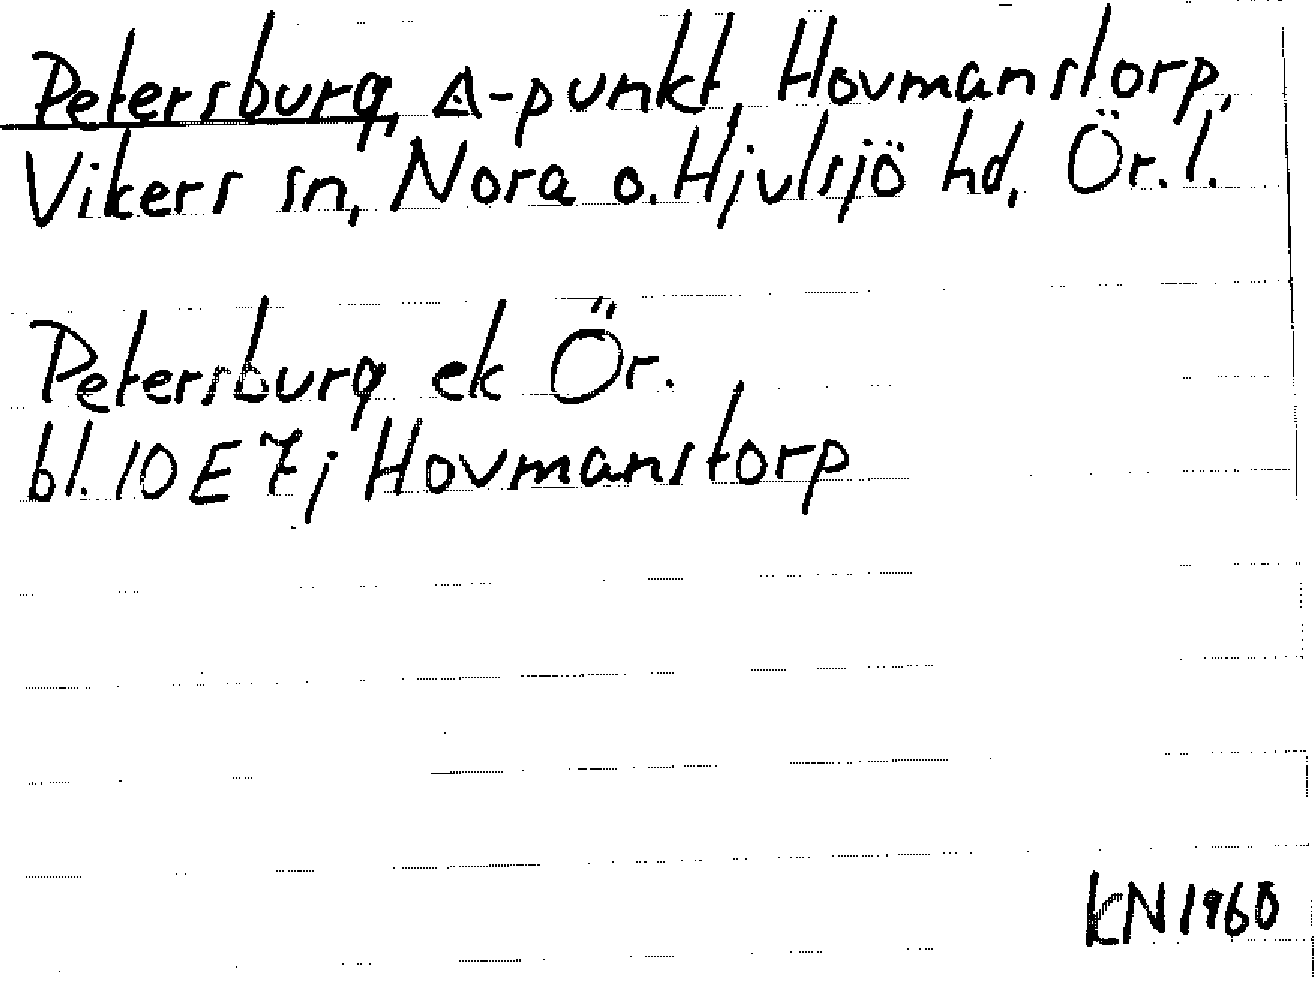 Petersburg, △-punkt, Hovmanstorp,
Vikers sn, Nora o. Hjulsjö hd, Ör. l.
Petersburg ek Ör.
bl. 10 E 7j Hovmanstorp
KN 1960